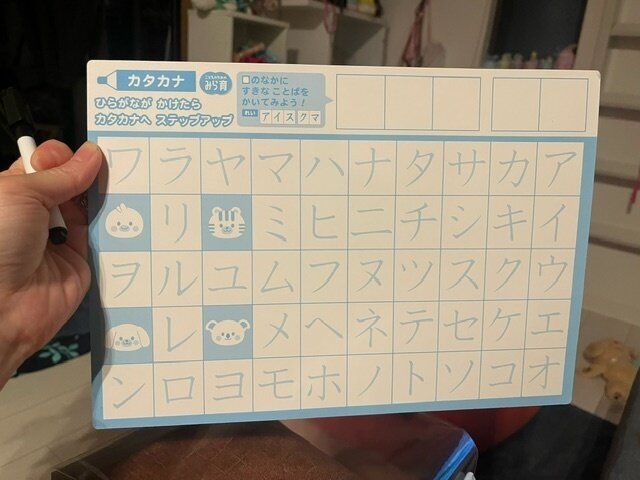 カタカナ
みら育
ひらがなが かけたら
カタカナへ ステップアップ
□のなかに
すきな ことばを
かいてみよう!
れい アイスクマ
ワラヤマハナタサカア
リミヒニチシキイ
ヲルユムフヌツスクウ
レメヘネテセケエ
ンロヨモホノトソコオ